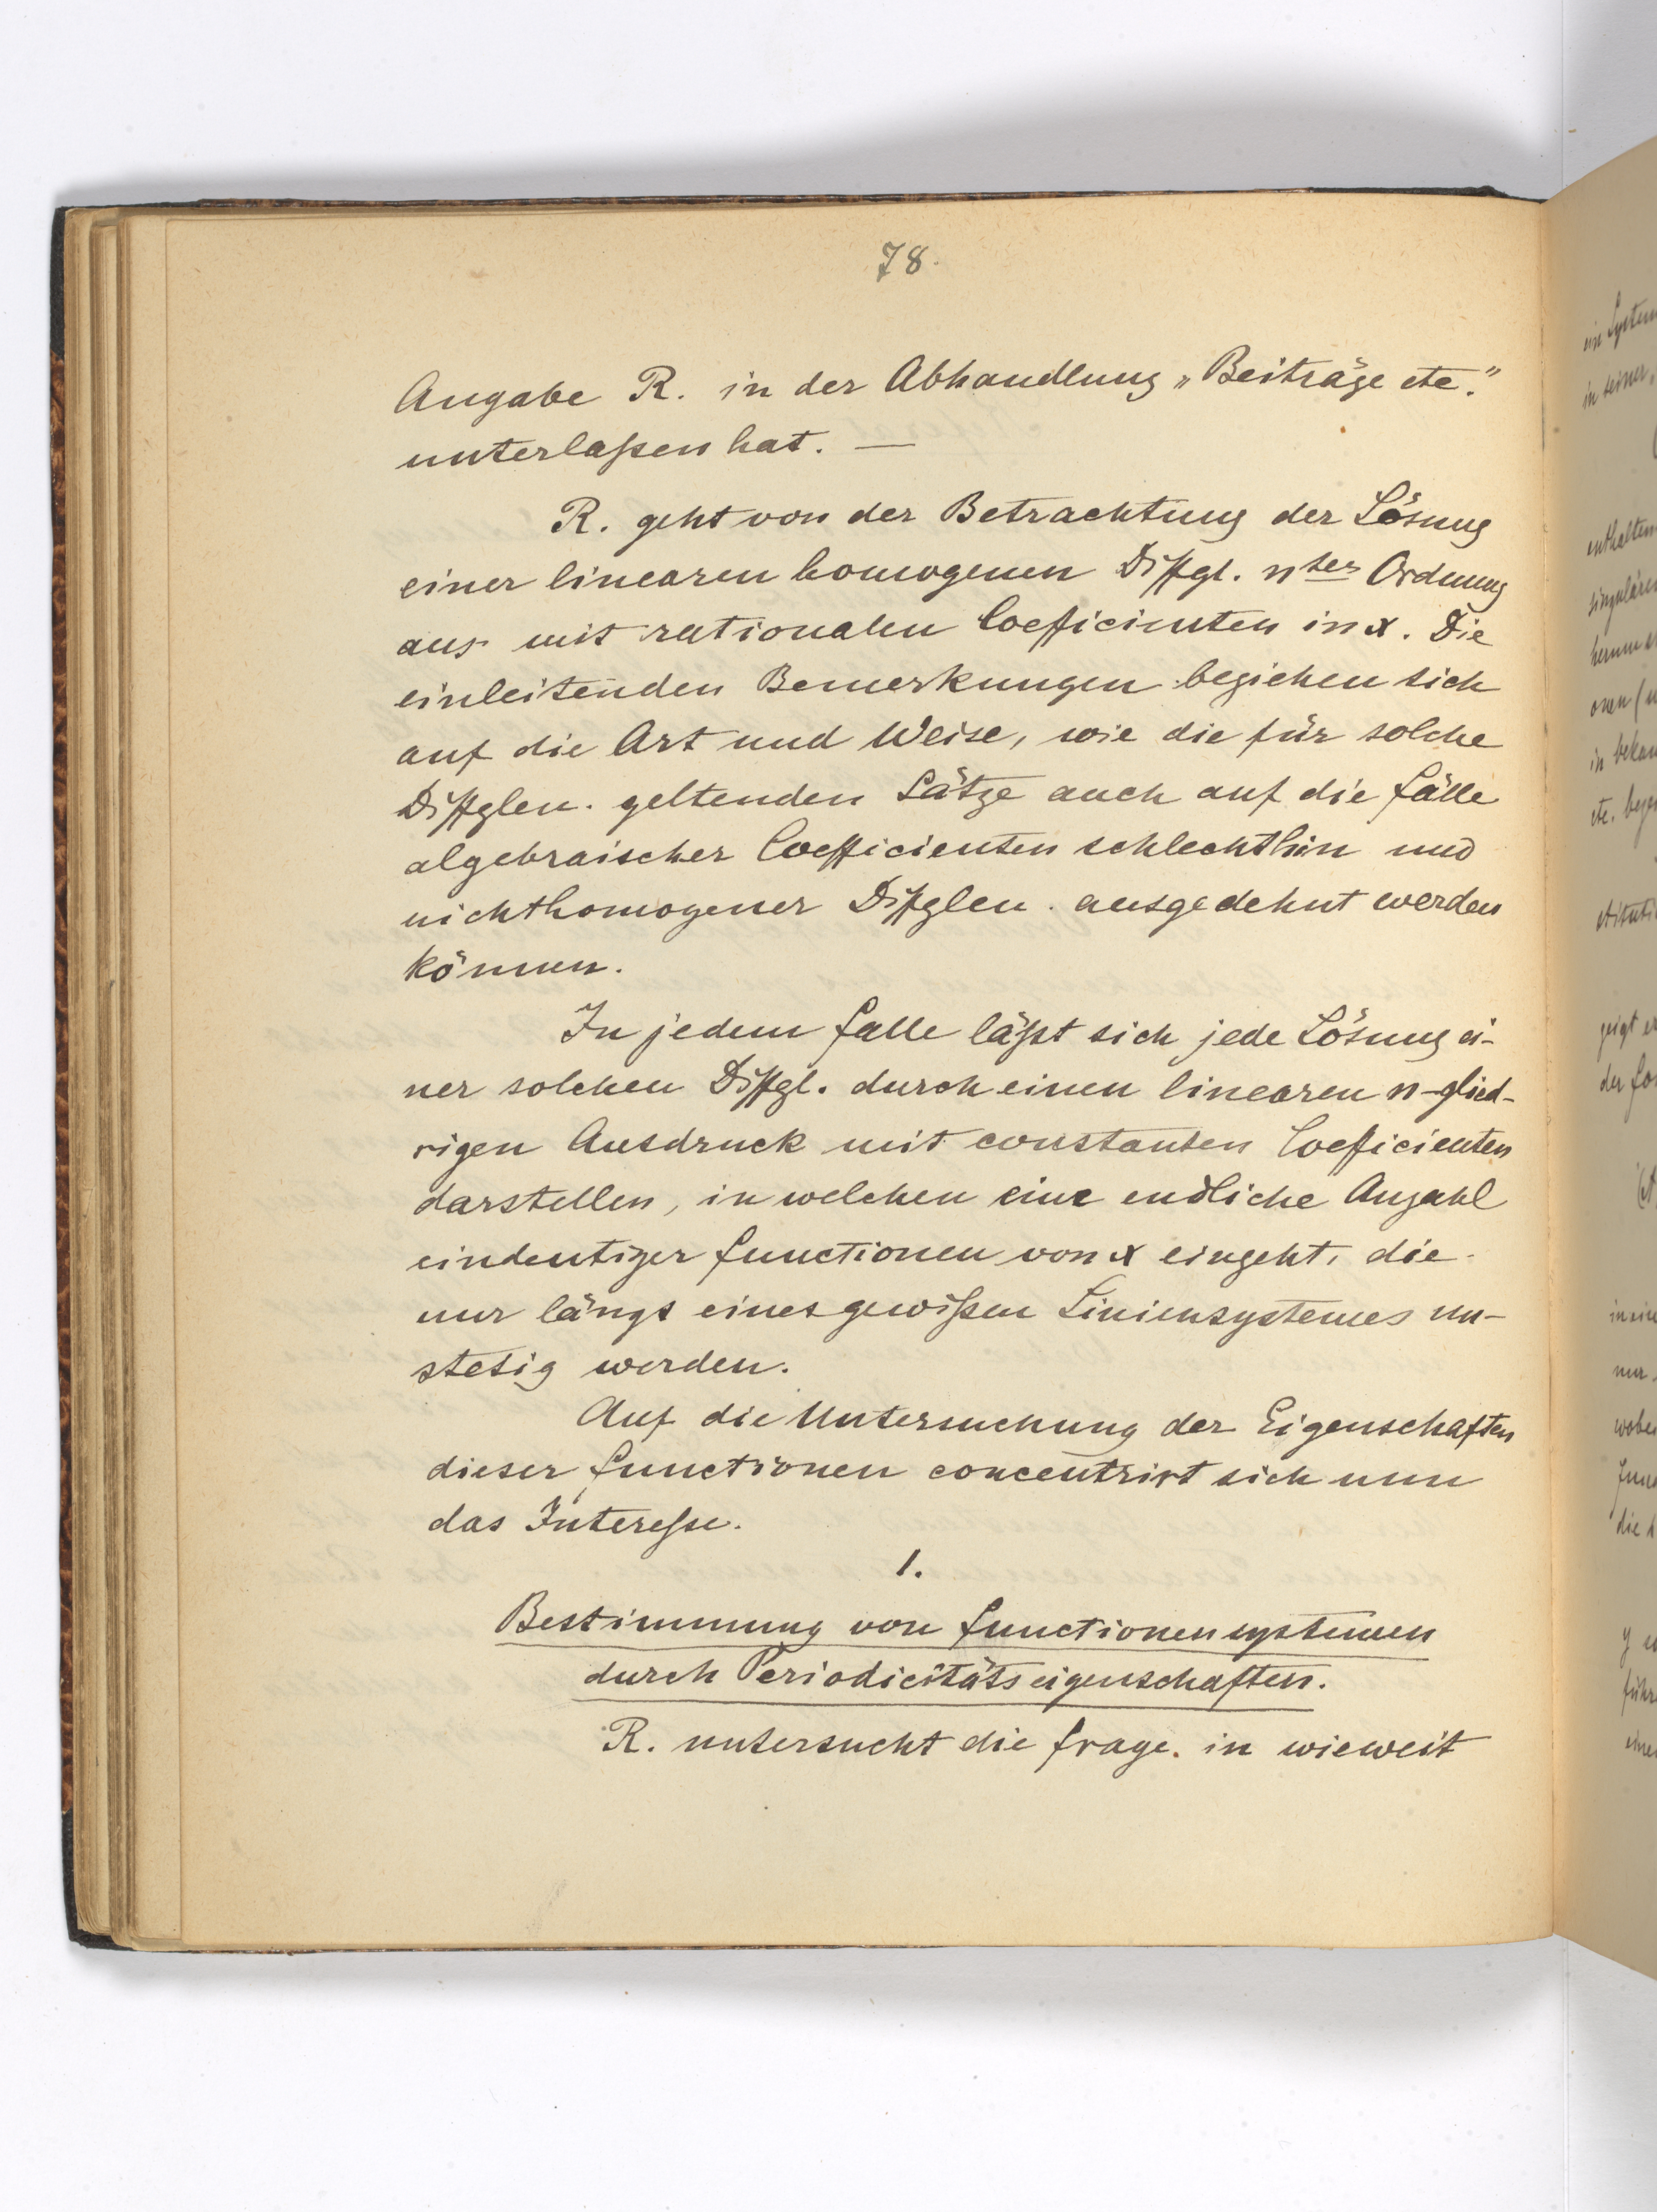 78.
Angabe R. in der Abhandlung „Beiträge etc."
unterlaßen hat. —
R. geht von der Betrachtung der Lösung
einer linearen homogenen Diffgl. nter Ordnung
aus mit rationalen Coefficienten in x. Die
einleitenden Bemerkungen beziehen sich
auf die Art und Weise, wie die für solche
Diffglen. geltenden Sätze auch auf die Fälle
algebraischer Coefficienten schlechthin und
nichthomogener Diffglen. ausgedehnt werden
können.
In jedem Falle läßt sich jede Lösung ei-
ner solchen Diffgl. durch einen linearen n-glied-
rigen Ausdruck mit constanten Coefficienten
darstellen, in welchen eine endliche Anzahl
eindeutiger Functionen von x eingeht, die
nur längs eines gewißen Liniensystemes un-
stetig werden.
Auf die Untersuchung der Eigenschaften
dieser Functionen concentrirt sich nun
das Intereße.
1.
Bestimmung von Functionensystemen
durch Periodicitätseigenschaften.
R. untersucht die Frage. in wieweit
ein System
in seiner,
enthalten
singulären
in bekan
etc.
zeigt er
nur
wobei
die